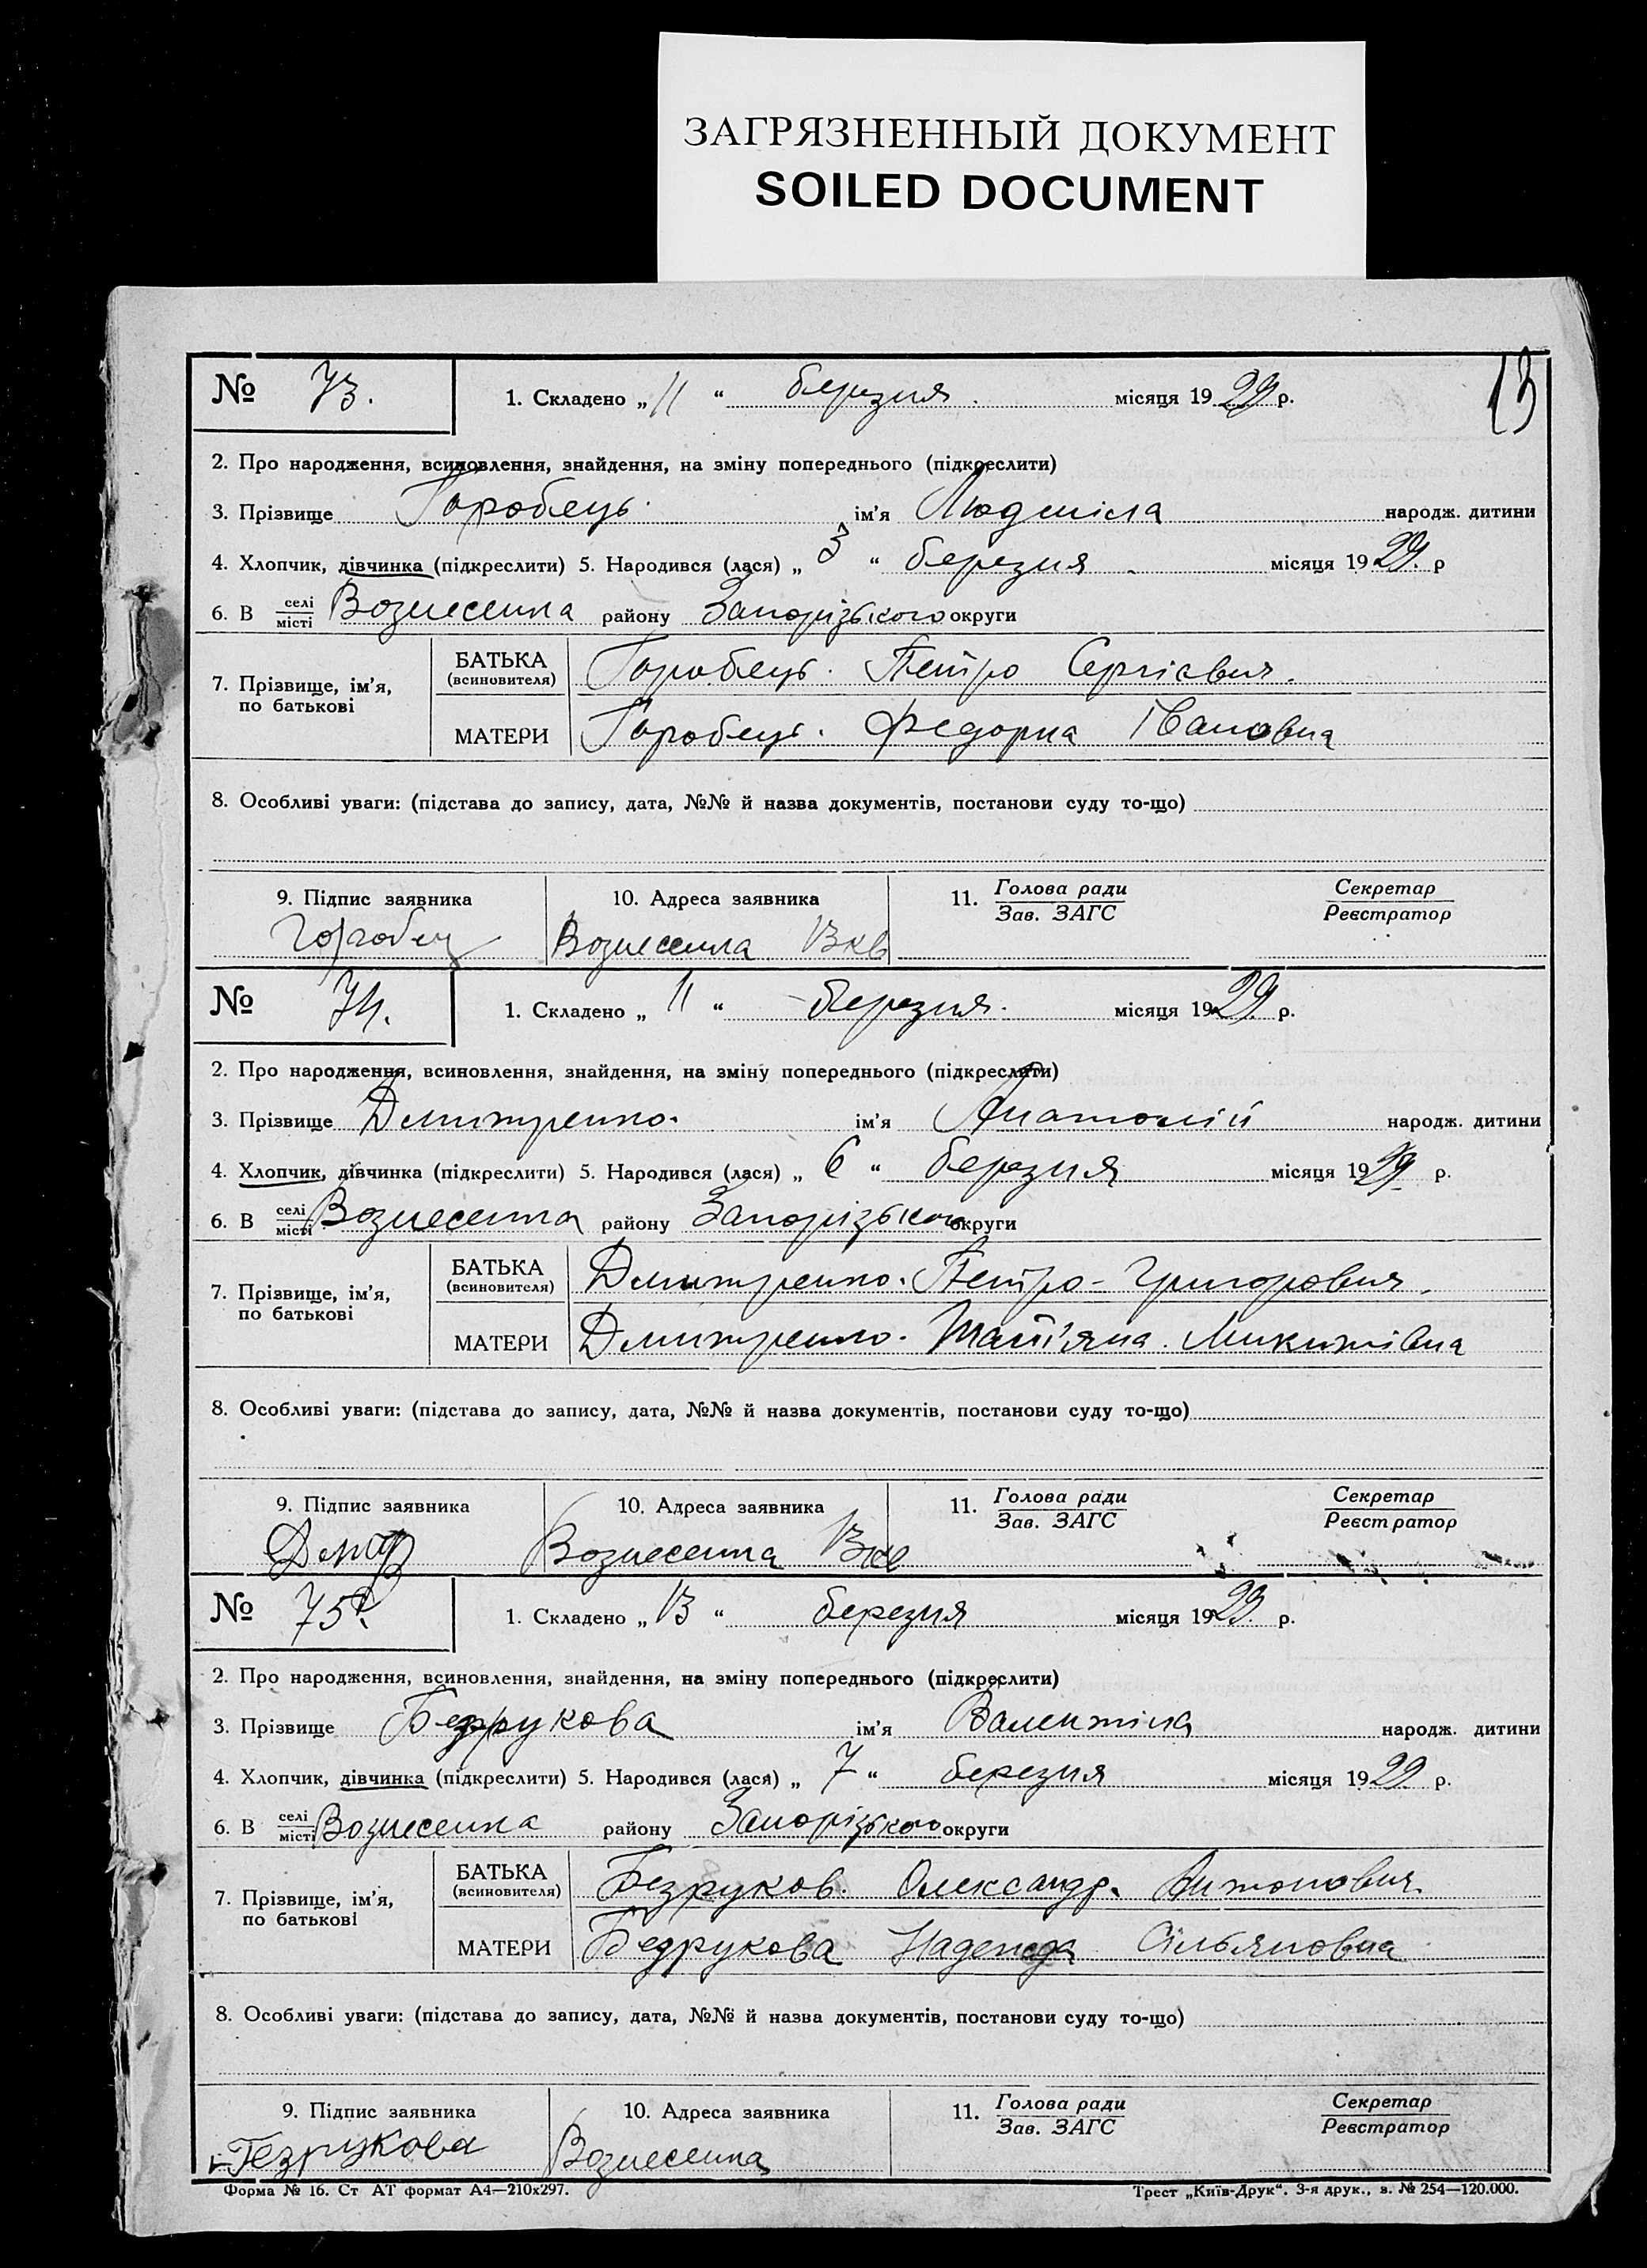 ЗАГРЯЗНЕННЫЙ ДОКУМЕНТ
SOILED DOCUMENT
13
№ 73. 1. Складено „ 11 “ березня. місяця 1929 р.
2. Про народження, всиновлення, знайдення, на зміну попереднього (підкреслити)
3. Прізвище Горобець. ім’я Людміла народж. дитини
4. Хлопчик, дівчинка (підкреслити) 5. Народився (лася) „ 3 “ березня місяця 1929. р
6. В селі місті Вознесенка району Запорізького округи
7. Прізвище, ім’я, по батькові
БАТЬКА (всиновителя) Горобець. Петро Сергієвич.
МАТЕРИ Горобець. Федорка Івановна
8. Особливі уваги: (підстава до запису, дата, №№ й назва документів, постанови суду то-що)
9. Підпис заявника 10. Адреса заявника 11. Голова ради Зав. ЗАГС Секретар Реєстратор
Горобец Вознесенка 13кв
№ 74. 1. Складено „ 11 “ березня. місяця 1929. р.
2. Про народження, всиновлення, знайдення, на зміну попереднього (підкреслити)
3. Прізвище Дмитренко. ім’я Анатолій народж. дитини
4. Хлопчик, дівчинка (підкреслити) 5. Народився (лася) „ 6 “ березня місяця 1929. р.
6. В селі місті Вознесенка району Запорізького округи
7. Прізвище, ім’я, по батькові
БАТЬКА (всиновителя) Дмитренко. Петро - Григорович.
МАТЕРИ Дмитренко. Тат'яна. Микитівна
8. Особливі уваги: (підстава до запису, дата, №№ й назва документів, постанови суду то-що)
9. Підпис заявника 10. Адреса заявника 11. Голова ради Зав. ЗАГС Секретар Реєстратор
Вознесенка 13кв
№ 75. 1. Складено „ 13 “ березня місяця 1929. р.
2. Про народження, всиновлення, знайдення, на зміну попереднього (підкреслити)
3. Прізвище Безрукова ім’я Валентіна народж. дитини
4. Хлопчик, дівчинка (підкреслити) 5. Народився (лася) „ 7 “ березня місяця 1929. р.
6. В селі місті Вознесенка району Запорізького округи
7. Прізвище, ім’я, по батькові
БАТЬКА (всиновителя) Безруков. Олександр. Антонович.
МАТЕРИ Безрукова Надежда Сільяновна
8. Особливі уваги: (підстава до запису, дата, №№ й назва документів, постанови суду то-що)
9. Підпис заявника 10. Адреса заявника 11. Голова ради Зав. ЗАГС Секретар Реєстратор
Безрукова Вознесенка
Форма № 16. Ст АТ формат А4—210х297. Трест „Київ-Друк“. 3-я друк., з. № 254—120.000.